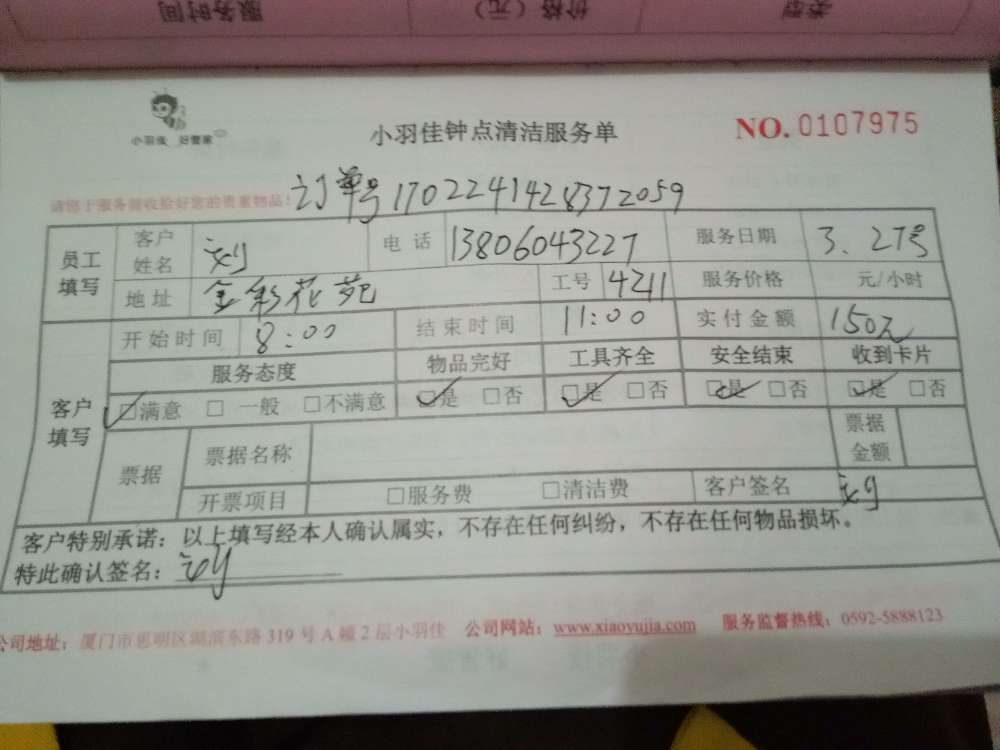 服务时间 价格（元） 类型
小羽佳 好管家
小羽佳钟点清洁服务单
NO. 0107975
请您于服务前收捡好您的贵重物品！
订单号1702241428372059
员工填写 客户姓名 刘 电话 13806043227 服务日期 3.27号
地址 金彩花苑 工号 4211 服务价格 元/小时
客户填写 开始时间 8:00 结束时间 11:00 实付金额 150元
服务态度 物品完好 工具齐全 安全结束 收到卡片
☑满意 □一般 □不满意 ☑是 □否 ☑是 □否 ☑是 □否 ☑是 □否
票据 票据名称 票据金额
开票项目 □服务费 □清洁费 客户签名 刘
客户特别承诺：以上填写经本人确认属实，不存在任何纠纷，不存在任何物品损坏。
特此确认签名：刘
公司地址：厦门市思明区湖滨东路319号A幢2层小羽佳 公司网站：www.xiaoyujia.com 服务监督热线：0592-5888123